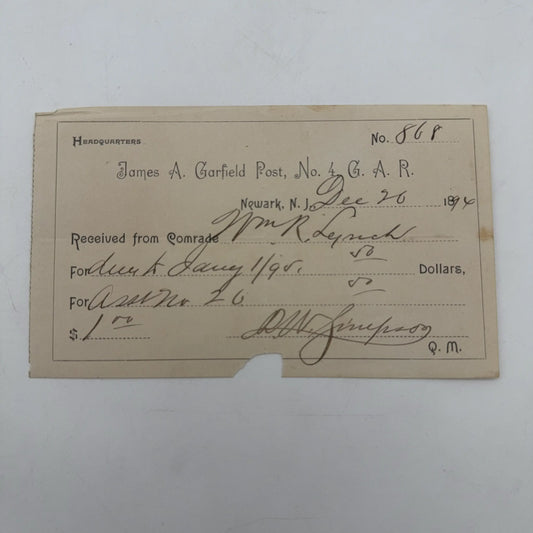 HEADQUARTERS No. 868
James A. Garfield Post, No. 4, G. A. R.
Newark, N. J. Dec 26 1894
Received from Comrade Wm R. Lynch
For dues to Jany 1/95. 50 Dollars,
For Asst No. 26 50
$ 1 00 D W. Simpson
Q. M.